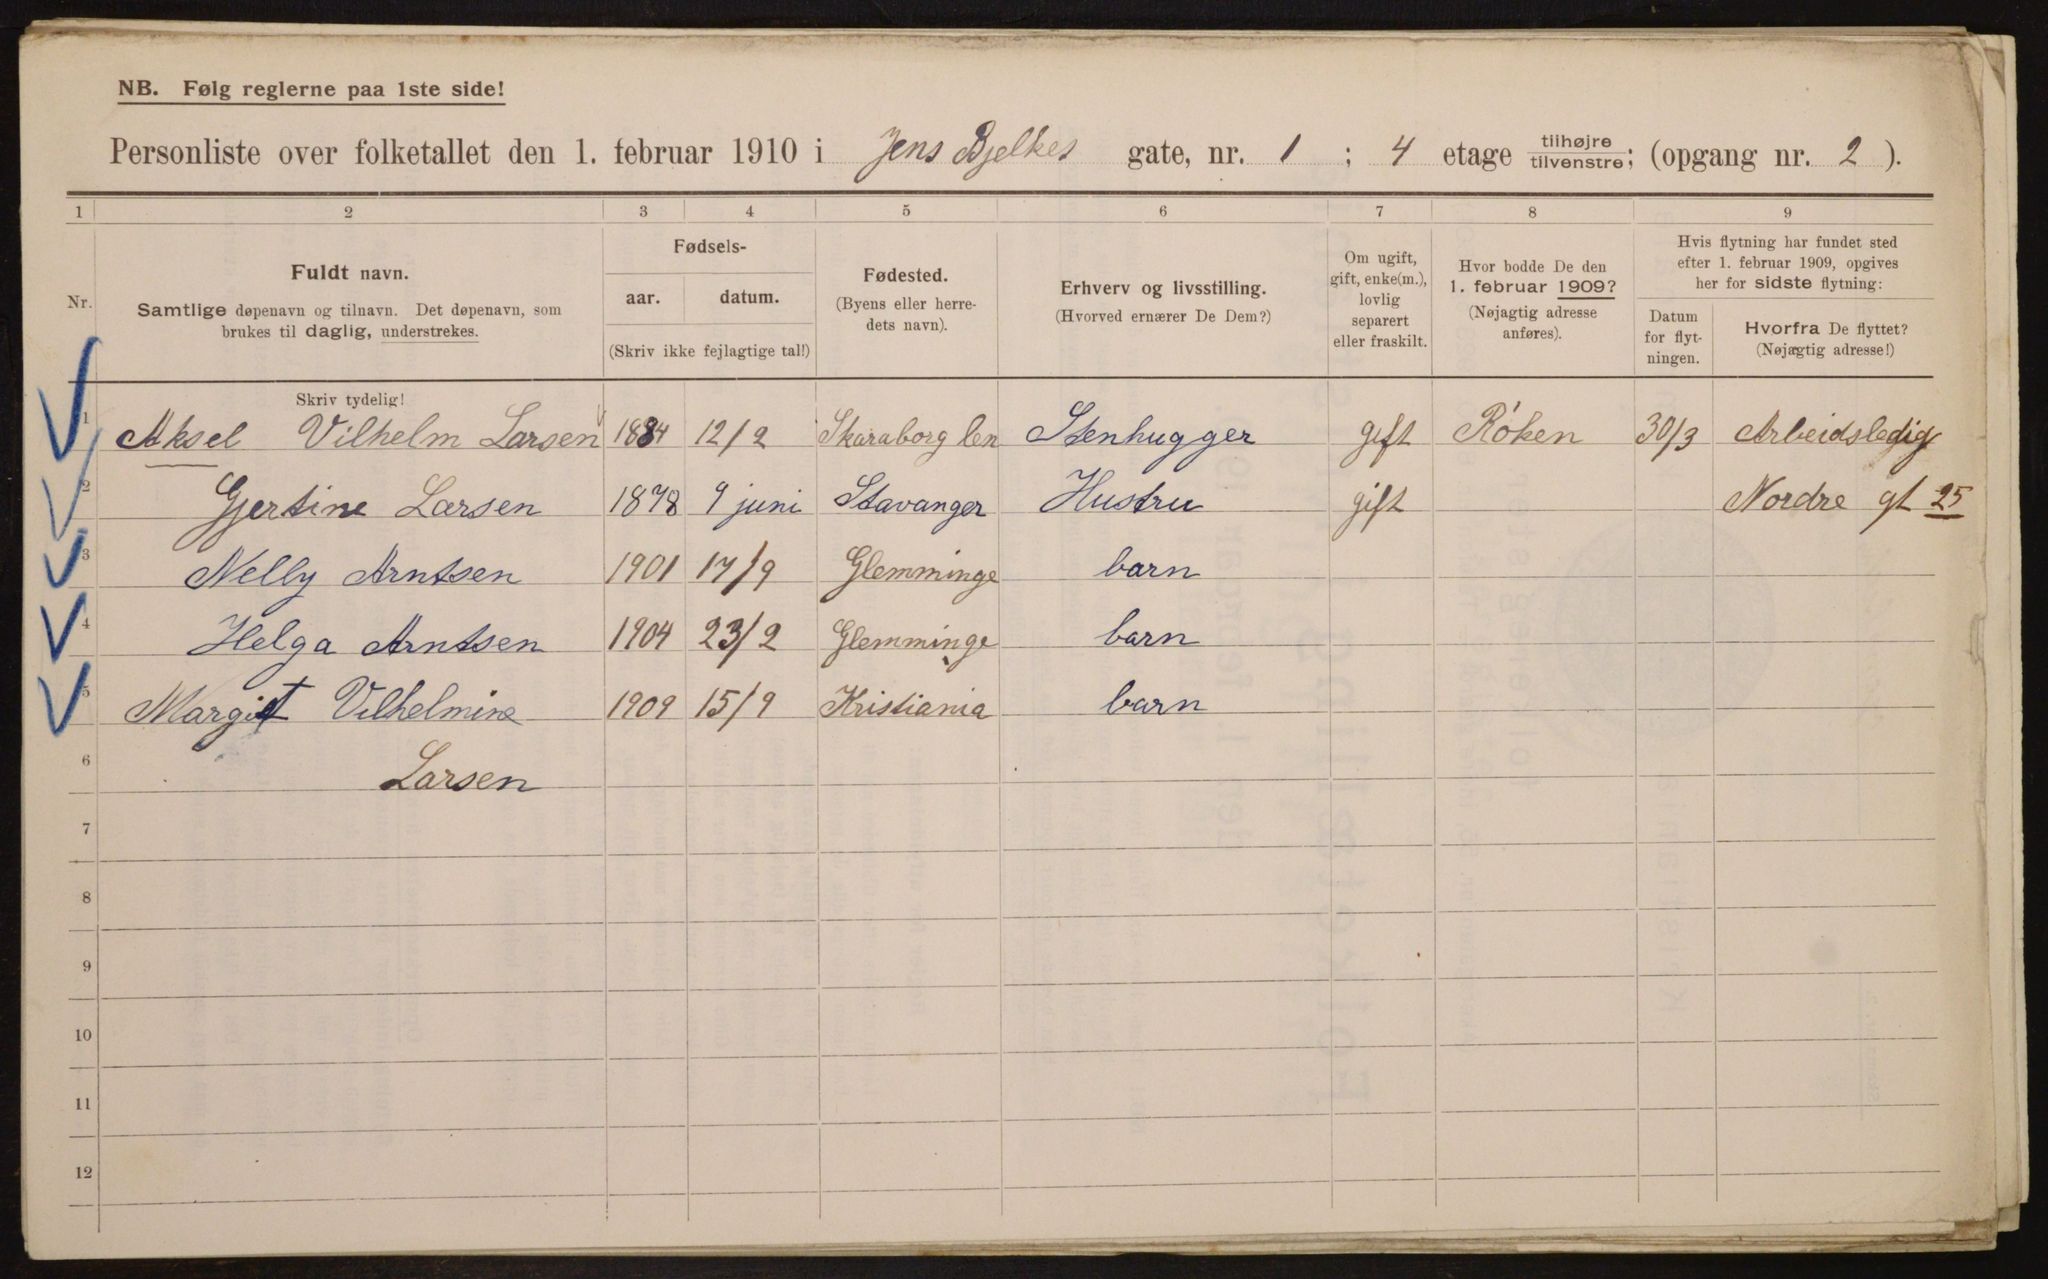 NB. Følg reglerne paa 1ste side!
Personliste over folketallet den 1. februar 1910 i Jens Bjelkes gate, nr. 1 ; 4 etage tilhøjre/tilvenstre; (opgang nr. 2 ).
1 2 3 4 5 6 7 8 9
Nr.
Fuldt navn.
Samtlige døpenavn og tilnavn. Det døpenavn, som
brukes til daglig, understrekes.
Skriv tydelig!
Fødsels-
aar. datum.
(Skriv ikke fejlagtige tal!)
Fødested.
(Byens eller herre-
dets navn).
Erhverv og livsstilling.
(Hvorved ernærer De Dem?)
Om ugift,
gift, enke(m.),
lovlig
separert
eller fraskilt.
Hvor bodde De den
1. februar 1909?
(Nøjagtig adresse
anføres).
Hvis flytning har fundet sted
efter 1. februar 1909, opgives
her for sidste flytning:
Datum
for flyt-
ningen.
Hvorfra De flyttet?
(Nøjagtig adresse!)
1 Aksel Vilhelm Larsen 1884 12/2 Skaraborg len Stenhugger gift Røken 30/3 Arbeidsledig
2 Gjertine Larsen 1878 9 juni Stavanger Hustru gift Nordre gt 25
3 Nelly Arntsen 1901 17/9 Glemminge barn
4 Helga Arntsen 1904 23/2 Glemminge barn
5 Margit Vilhelmine 1909 15/9 Kristiania barn
6 Larsen
7
8
9
10
11
12